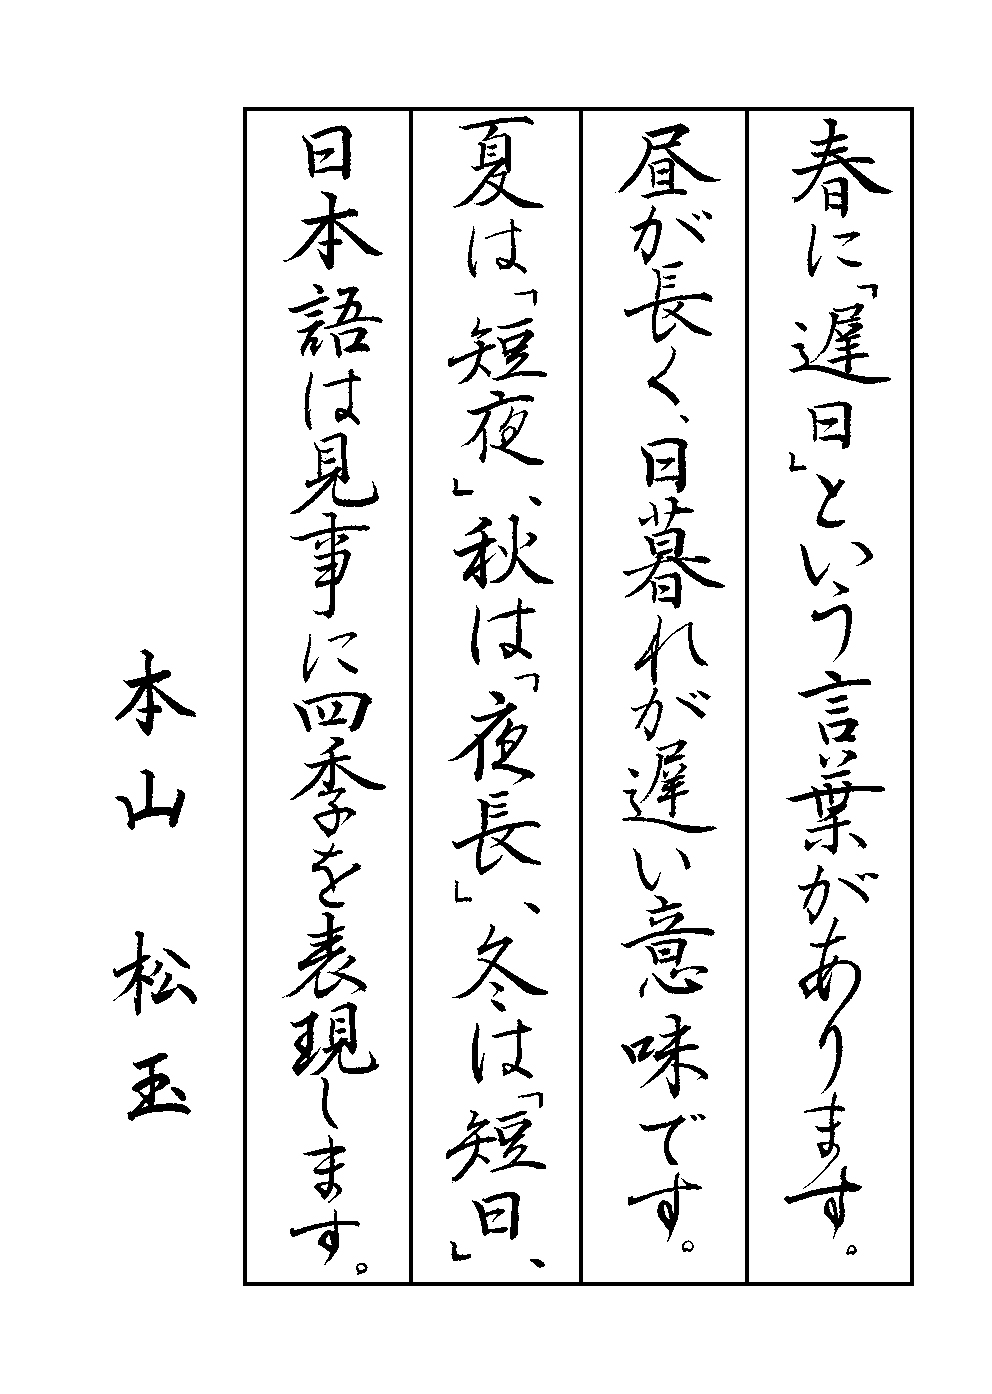 春に「遅日」という言葉があります。
昼が長く、日暮れが遅い意味です。
夏は「短夜」、秋は「夜長」、冬は「短日」、
日本語は見事に四季を表現します。
本山 松玉